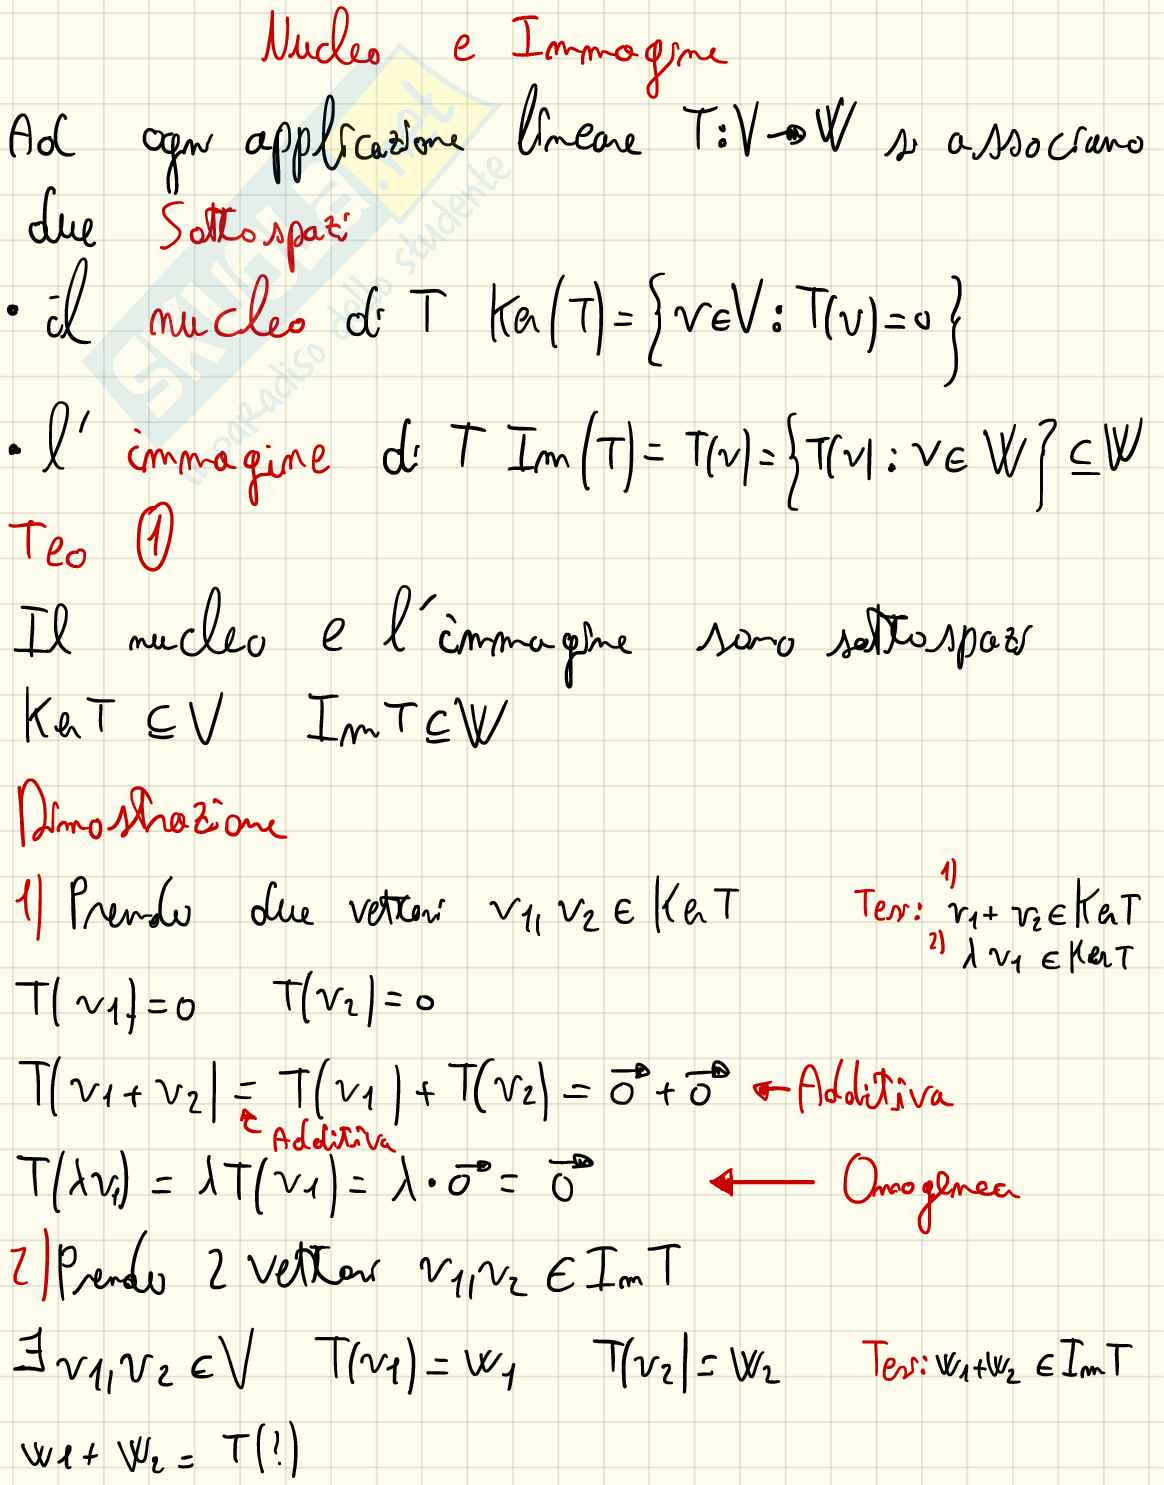 Nucleo e Immagine
Ad ogni applicazione lineare T:V→W si associano
due Sottospazi
• il nucleo di T Ker(T)={v∈V:T(v)=0}
• l' immagine di T Im(T)=T(v)={T(v):v∈W}⊆W
Teo ①
Il nucleo e l'immagine sono sottospazi
Ker T ⊆ V Im T ⊆ W
Dimostrazione
1) Prendo due vettori v1, v2 ∈ Ker T
Tesi: 1) v1 + v2 ∈ Ker T
2) λ v1 ∈ Ker T
T(v1)=0 T(v2)=0
T(v1+v2) = T(v1)+T(v2) = 0⃗ + 0⃗ ← Additiva
Additiva
T(λv1) = λT(v1) = λ·0⃗ = 0⃗ ← Omogenea
2) Prendo 2 vettori v1, v2 ∈ Im T
∃ v1, v2 ∈ V T(v1)=w1 T(v2)=w2 Tesi: w1+w2 ∈ Im T
w1+w2 = T(?)
SKUOLA.net
il paradiso dello studente